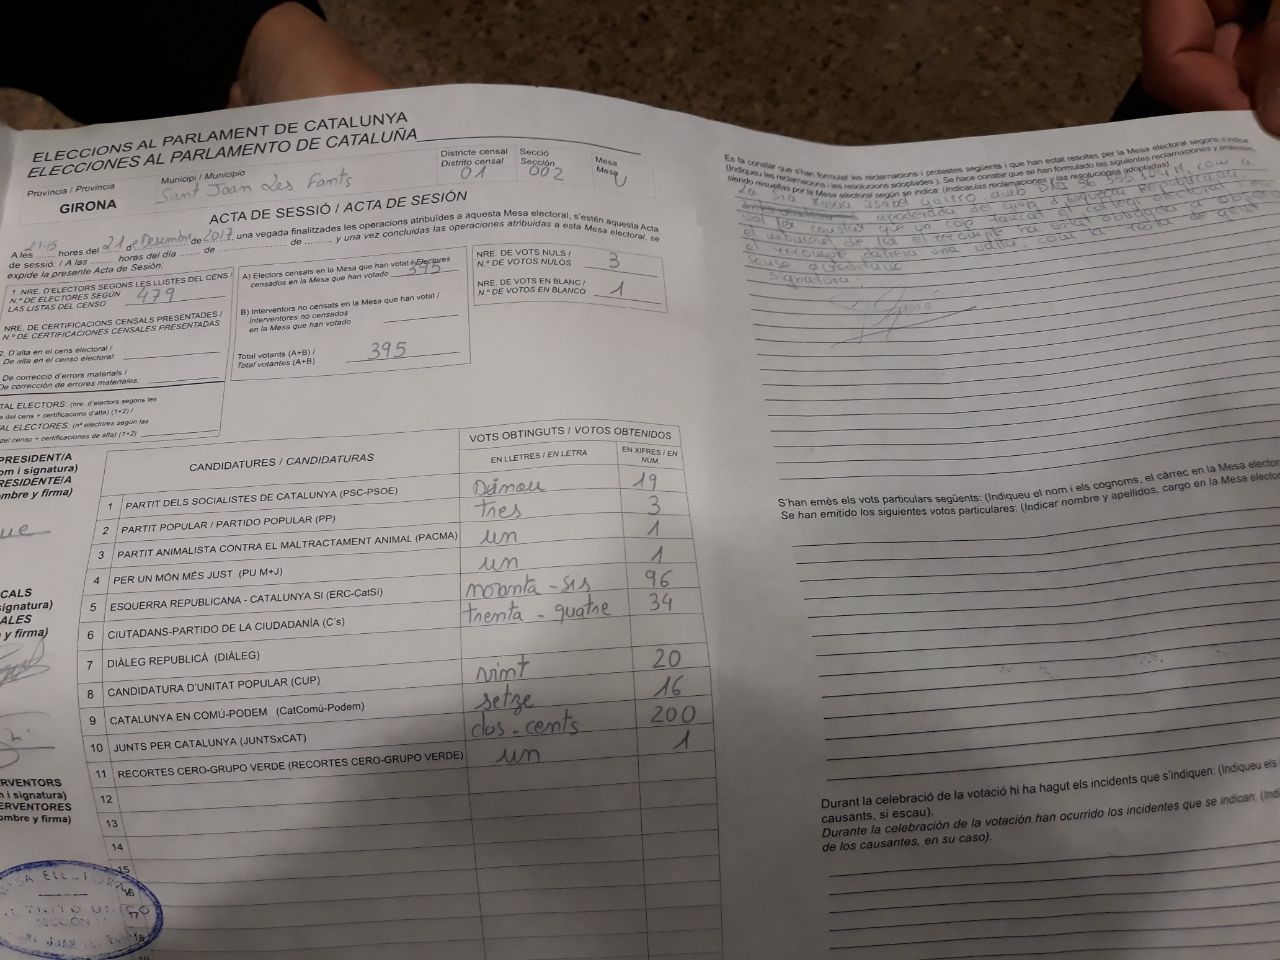 ELECCIONS AL PARLAMENT DE CATALUNYA
ELECCIONES AL PARLAMENTO DE CATALUÑA
Província / Provincia
GIRONA
Municipi / Municipio
Sant Joan Les Fonts
Districte censal
Distrito censal
01
Secció
Sección
002
Mesa
Mesa
U
ACTA DE SESSIÓ / ACTA DE SESIÓN
A les 21:15 hores del 21 de Desembre de 2017, una vegada finalitzades les operacions atribuïdes a aquesta Mesa electoral, s'estén aquesta Acta
de sessió: / A las ........ horas del día ........ de ........ de ........ y una vez concluidas las operaciones atribuidas a esta Mesa electoral, se
expide la presente Acta de Sesión:
1. NRE. D'ELECTORS SEGONS LES LLISTES DEL CENS /
N.º DE ELECTORES SEGÚN
LAS LISTAS DEL CENSO
479
NRE. DE CERTIFICACIONS CENSALS PRESENTADES /
N.º DE CERTIFICACIONES CENSALES PRESENTADAS
2. D'alta en el cens electoral /
De alta en el censo electoral:
De correcció d'errors materials /
De corrección de errores materiales:
TAL ELECTORS: (nre. d'electors segons les
s del cens + certificacions d'alta) (1+2) /
AL ELECTORES: (nº electores según las
del censo + certificaciones de alta) (1+2)
A) Electors censats en la Mesa que han votat / Electores
censados en la Mesa que han votado
395
B) Interventors no censats en la Mesa que han votat /
Interventores no censados
en la Mesa que han votado
Total votants (A+B) /
Total votantes (A+B)
395
NRE. DE VOTS NULS /
N.º DE VOTOS NULOS
3
NRE. DE VOTS EN BLANC /
N.º DE VOTOS EN BLANCO
1
PRESIDENT/A
om i signatura)
RESIDENTE/A
mbre y firma)
CALS
signatura)
ALES
y firma)
RVENTORS
n i signatura)
ERVENTORES
ombre y firma)
CANDIDATURES / CANDIDATURAS
VOTS OBTINGUTS / VOTOS OBTENIDOS
EN LLETRES / EN LETRA
EN XIFRES / EN NÚM.
1 PARTIT DELS SOCIALISTES DE CATALUNYA (PSC-PSOE) Dinou 19
2 PARTIT POPULAR / PARTIDO POPULAR (PP) tres 3
3 PARTIT ANIMALISTA CONTRA EL MALTRACTAMENT ANIMAL (PACMA) un 1
4 PER UN MÓN MÉS JUST (PU M+J) un 1
5 ESQUERRA REPUBLICANA - CATALUNYA SI (ERC-CatSí) noranta-sis 96
6 CIUTADANS-PARTIDO DE LA CIUDADANÍA (C's) trenta - quatre 34
7 DIÀLEG REPUBLICÀ (DIÀLEG)
8 CANDIDATURA D'UNITAT POPULAR (CUP) vint 20
9 CATALUNYA EN COMÚ-PODEM (CatComú-Podem) setze 16
10 JUNTS PER CATALUNYA (JUNTSxCAT) dos-cents 200
11 RECORTES CERO-GRUPO VERDE (RECORTES CERO-GRUPO VERDE) un 1
12
13
14
15
16
17
18
MESA ELECTORAL
DISTRITO UNICO
SECCIÓN
Es fa constar que s'han formulat les reclamacions i protestes següents i que han estat resoltes per la Mesa electoral segons s'indica:
(Indiqueu les reclamacions i les resolucions adoptades). Se hace constar que se han formulado las siguientes reclamaciones y protestas,
siendo resueltas por la Mesa electoral según se indica: (Indicar las reclamaciones y las resoluciones adoptadas).
La Sra Rosa Isabel
apoderada del Republicana
vol fer constar que un cop tancat el col·legi electoral
el recompte
signatura
S'han emès els vots particulars següents: (Indiqueu el nom i els cognoms, el càrrec en la Mesa elector
Se han emitido los siguientes votos particulares: (Indicar nombre y apellidos, cargo en la Mesa elector
Durant la celebració de la votació hi ha hagut els incidents que s'indiquen: (Indiqueu els
causants, si escau).
Durante la celebración de la votación han ocurrido los incidentes que se indican: (Ind
de los causantes, en su caso).